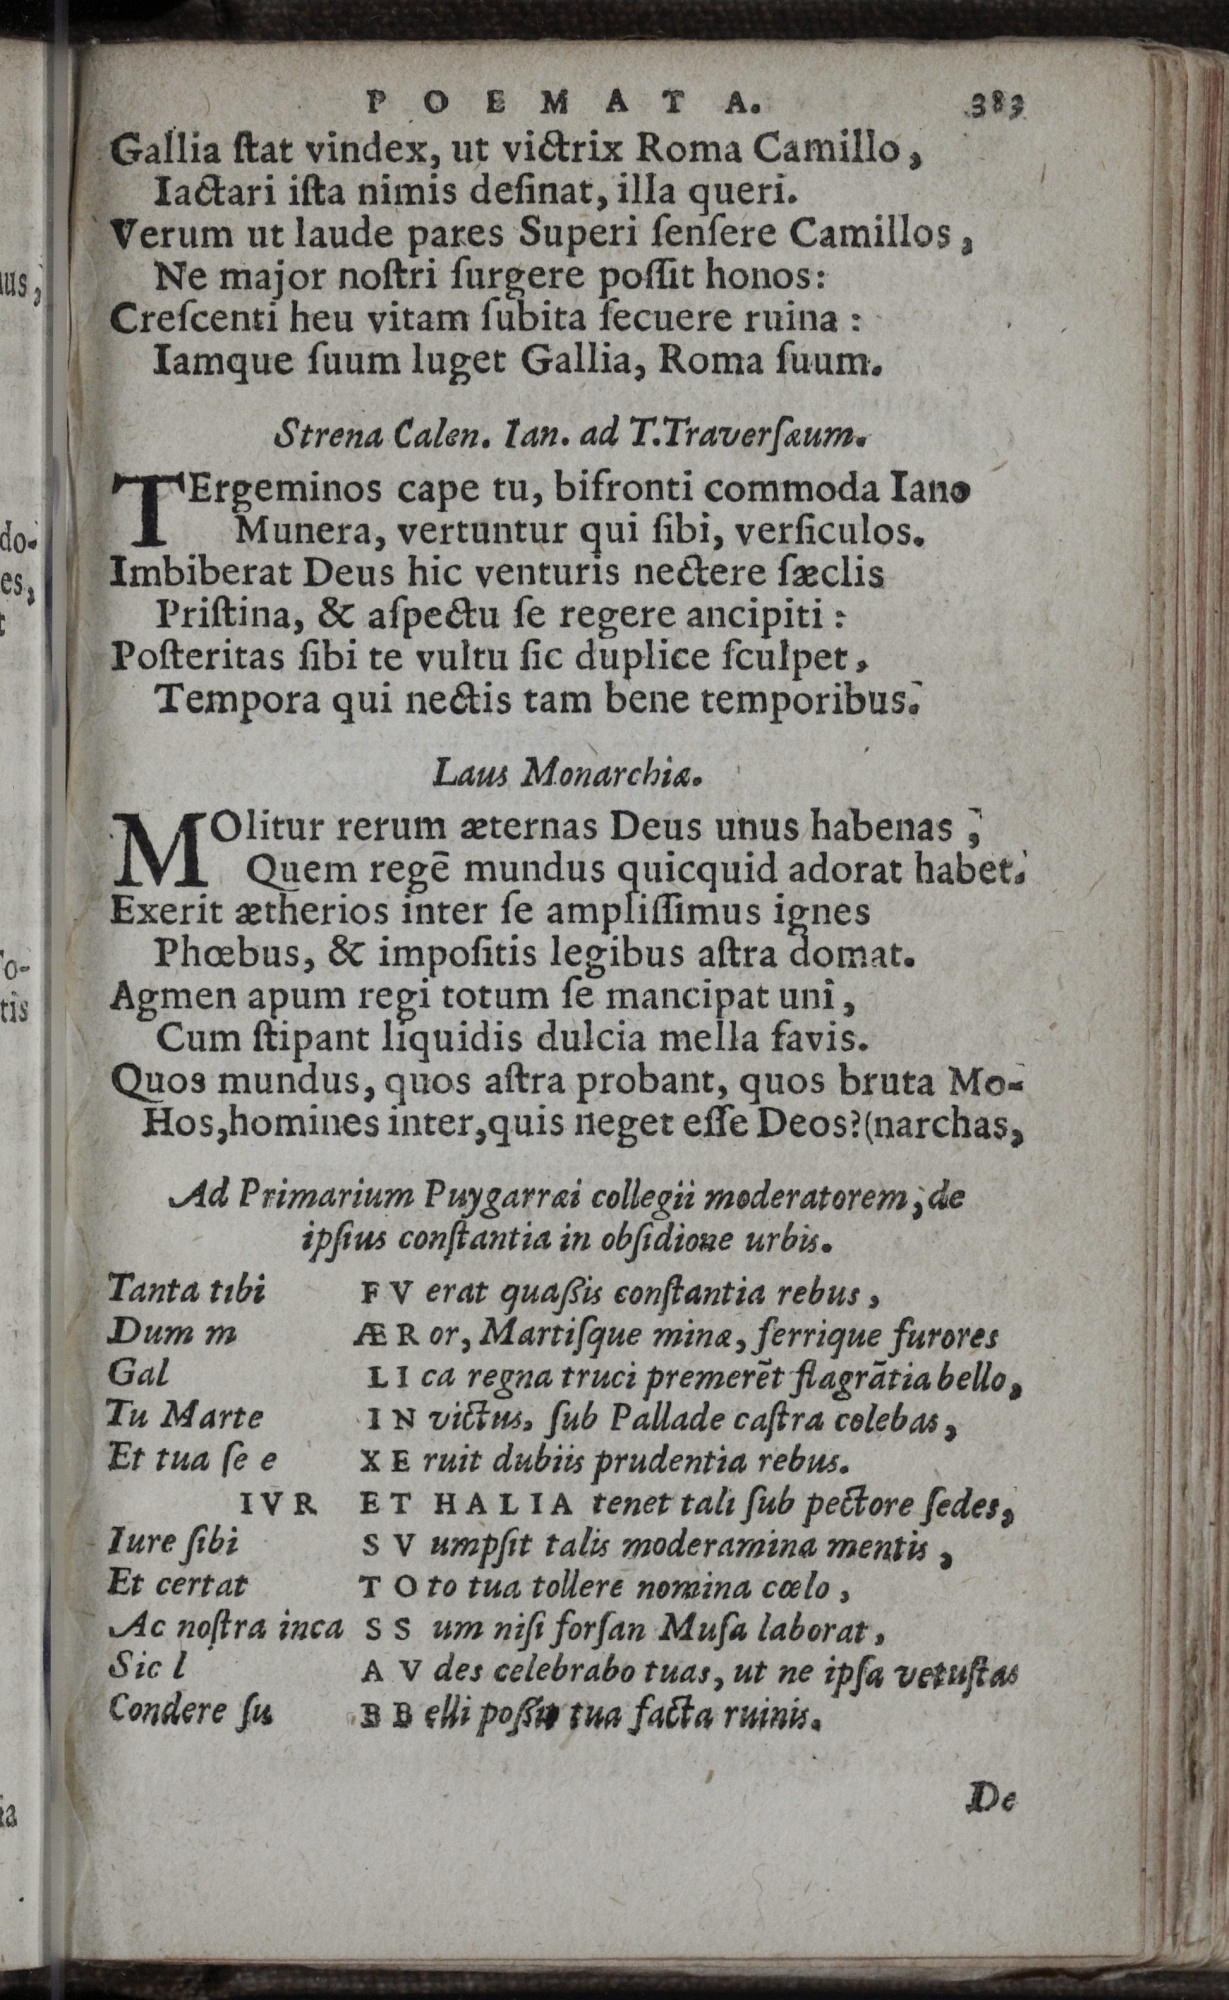 POEMATA. 383
Gallia ſtat vindex, ut victrix Roma Camillo,
Iactari iſta nimis deſinat, illa queri.
Verum ut laude pares Superi ſenſere Camillos,
Ne major noſtri ſurgere poſſit honos:
Creſcenti heu vitam ſubita ſecuere ruina:
Iamque ſuum luget Gallia, Roma ſuum.
Strena Calen. Ian. ad T. Traverſæum.
TErgeminos cape tu, bifronti commoda Iano
Munera, vertuntur qui ſibi, verſiculos.
Imbiberat Deus hic venturis nectere ſæclis
Priſtina, & aſpectu ſe regere ancipiti:
Poſteritas ſibi te vultu ſic duplice ſculpet,
Tempora qui nectis tam bene temporibus.
Laus Monarchiæ.
MOlitur rerum æternas Deus unus habenas,
Quem regē mundus quicquid adorat habet.
Exerit ætherios inter ſe ampliſſimus ignes
Phœbus, & impoſitis legibus aſtra domat.
Agmen apum regi totum ſe mancipat uni,
Cum ſtipant liquidis dulcia mella favis.
Quos mundus, quos aſtra probant, quos bruta Mo-
Hos, homines inter, quis neget eſſe Deos? (narchas,
Ad Primarium Puygarræi collegii moderatorem, de
ipſius conſtantia in obſidione urbis.
Tanta tibi FV erat quaſſis conſtantia rebus,
Dum m ÆR or, Martiſque minæ, ferrique furores
Gal LI ca regna truci premerēt flagrātia bello,
Tu Marte IN victus, ſub Pallade caſtra colebas,
Et tua ſe e XE ruit dubiis prudentia rebus.
IVR ET HALIA tenet tali ſub pectore ſedes,
Iure ſibi SV umpſit talis moderamina mentis,
Et certat TO to tua tollere nomina cœlo,
Ac noſtra inca SS um niſi forſan Muſa laborat,
Sic l AV des celebrabo tuas, ut ne ipſa vetuſtas
Condere ſu BB elli poſſit tua facta ruinis.
De
us,
do-
es,
t
o-
tis
ia